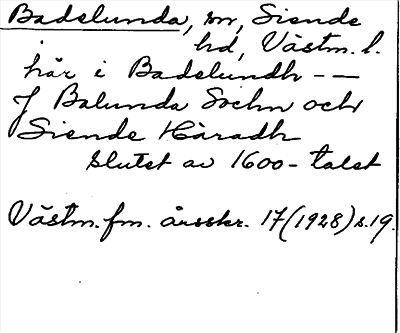 Badelunda, sn, Siende
hd, Västm. l.
här i Badelundh --
J Balunda Sochn och
Siende Häradh
slutet av 1600-talet
Västm. fm. årsskr. 17 (1928) s. 19.